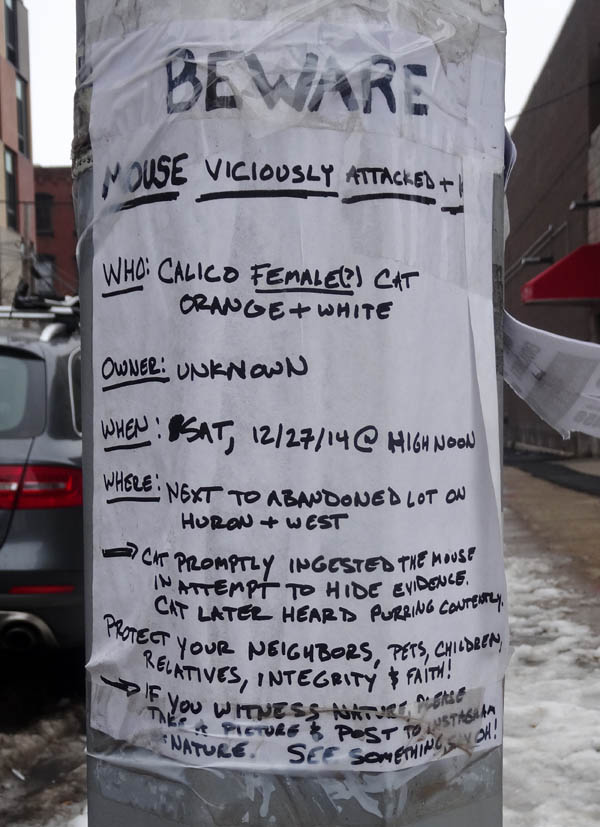 BEWARE
MOUSE VICIOUSLY ATTACKED +
WHO: CALICO FEMALE(?) CAT
ORANGE + WHITE
OWNER: UNKNOWN
WHEN: SAT, 12/27/14 @ HIGH NOON
WHERE: NEXT TO ABANDONED LOT ON
HURON + WEST
→ CAT PROMPTLY INGESTED THE MOUSE
IN ATTEMPT TO HIDE EVIDENCE.
CAT LATER HEARD PURRING CONTENTLY.
PROTECT YOUR NEIGHBORS, PETS, CHILDREN,
RELATIVES, INTEGRITY & FAITH!
→ IF YOU WITNESS NATURE, PLEASE
TAKE A PICTURE & POST TO INSTAGRAM
NATURE. SEE SOMETHING, OH!